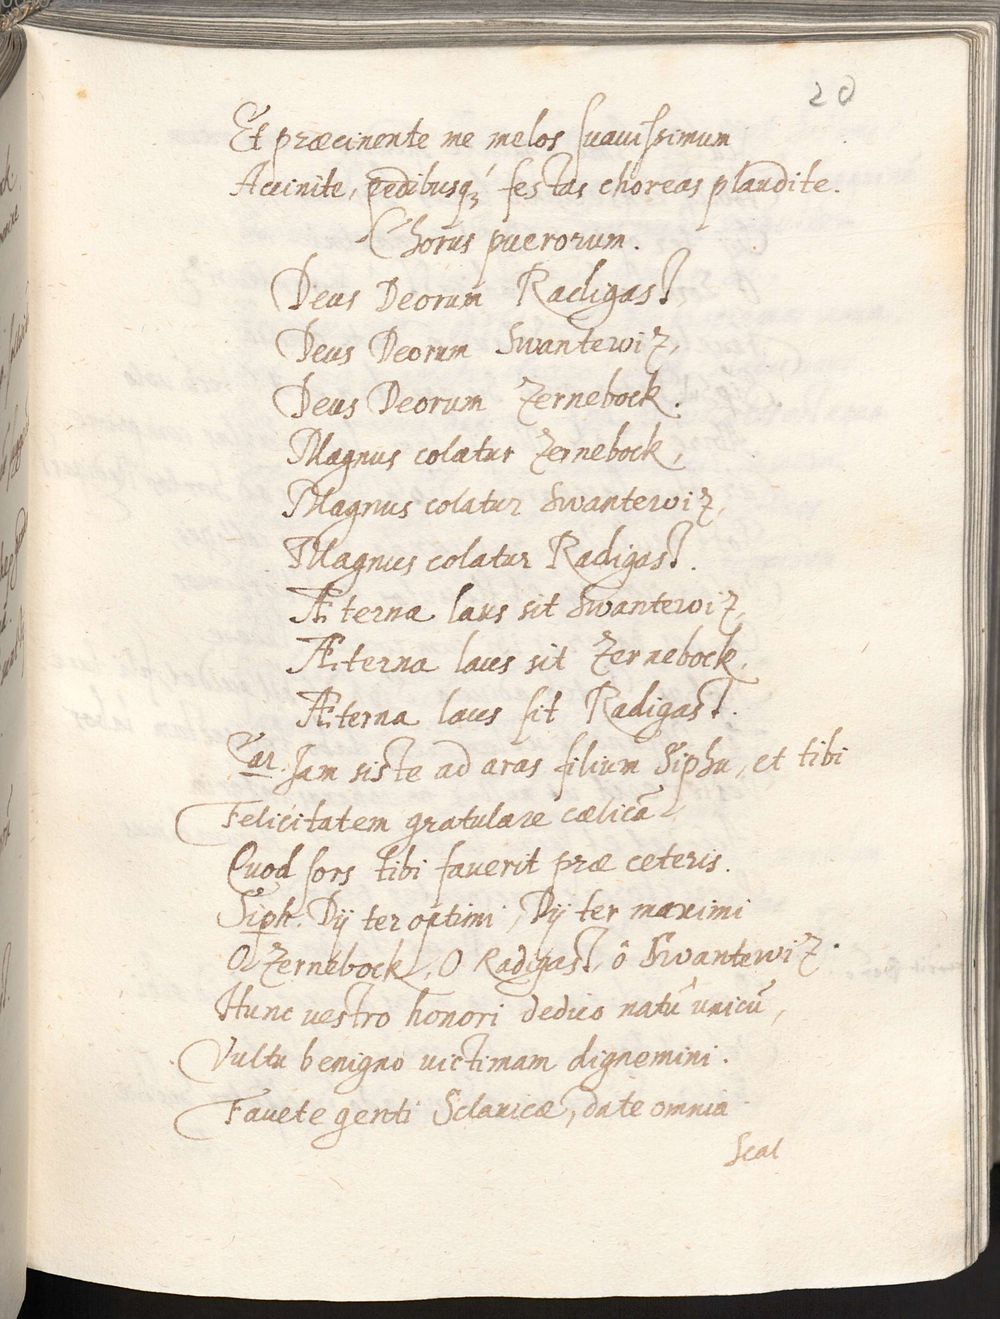 20
Et præcinente me melos suauissimum
Accinite, pedibusq; festas choreas plaudite.
Chorus puerorum.
Deus Deorum Radigast
Deus Deorum Swantewiz,
Deus Deorum Zernebock.
Magnus colatur Zernebock,
Magnus colatur Swantewiz,
Magnus colatur Radigast.
Æterna laus sit Swantewiz,
Æterna laus sit Zernebock,
Æterna laus sit Radigast.
Car. Jam siste ad aras filium Sipha, et tibi
Felicitatem gratulare cœlicā
Quod sors tibi fauerit præ ceteris.
Siph. Dij ter optimi, Dij ter maximi
O Zernebock, O Radigast, ô Swantewiz.
Hunc uestro honori dedico natū unicū,
Vultu benigno uictimam dignemini.
Fauete genti Sclauicæ, date omnia
Scal